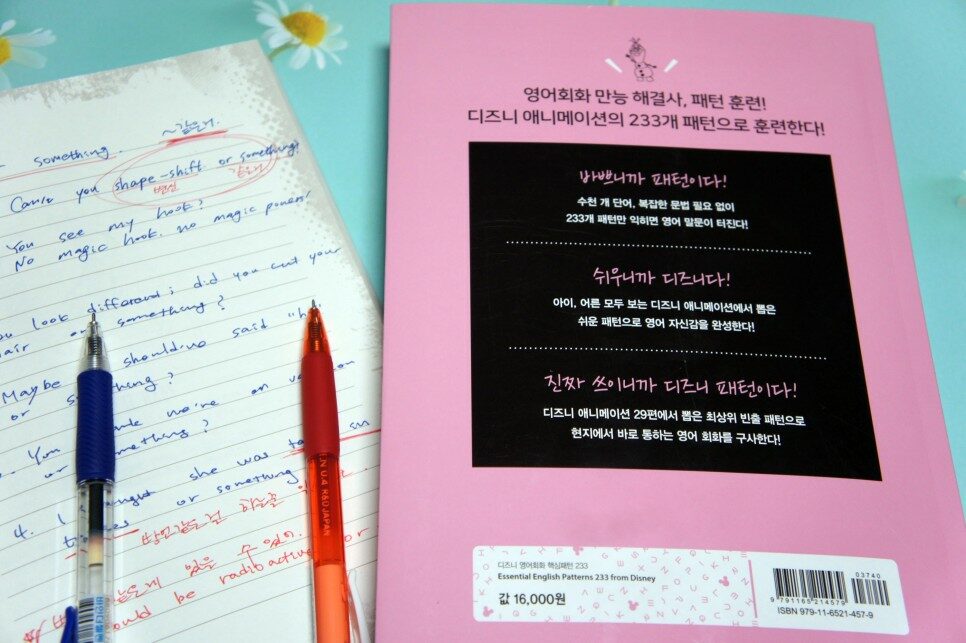 ~ 같은거.
something.
Can't you shape-shift or something?
변신 같은거.
You see my hook?
No magic hook. no magic powers!
look different; did you cut your
hair or something?
Maybe should've said "h
or something?
You we're on vacation
or something?
4. I she was
or something
영어회화 만능 해결사, 패턴 훈련!
디즈니 애니메이션의 233개 패턴으로 훈련한다!
바쁘니까 패턴이다!
수천 개 단어, 복잡한 문법 필요 없이
233개 패턴만 익히면 영어 말문이 터진다!
쉬우니까 디즈니다!
아이, 어른 모두 보는 디즈니 애니메이션에서 뽑은
쉬운 패턴으로 영어 자신감을 완성한다!
진짜 쓰이니까 디즈니 패턴이다!
디즈니 애니메이션 29편에서 뽑은 최상위 빈출 패턴으로
현지에서 바로 통하는 영어 회화를 구사한다!
디즈니 영어회화 핵심패턴 233
Essential English Patterns 233 from Disney
값 16,000원
03740
9 791165 214579
ISBN 979-11-6521-457-9
0.4 R&D JAPAN
있을 수 있어.
be radioactive or